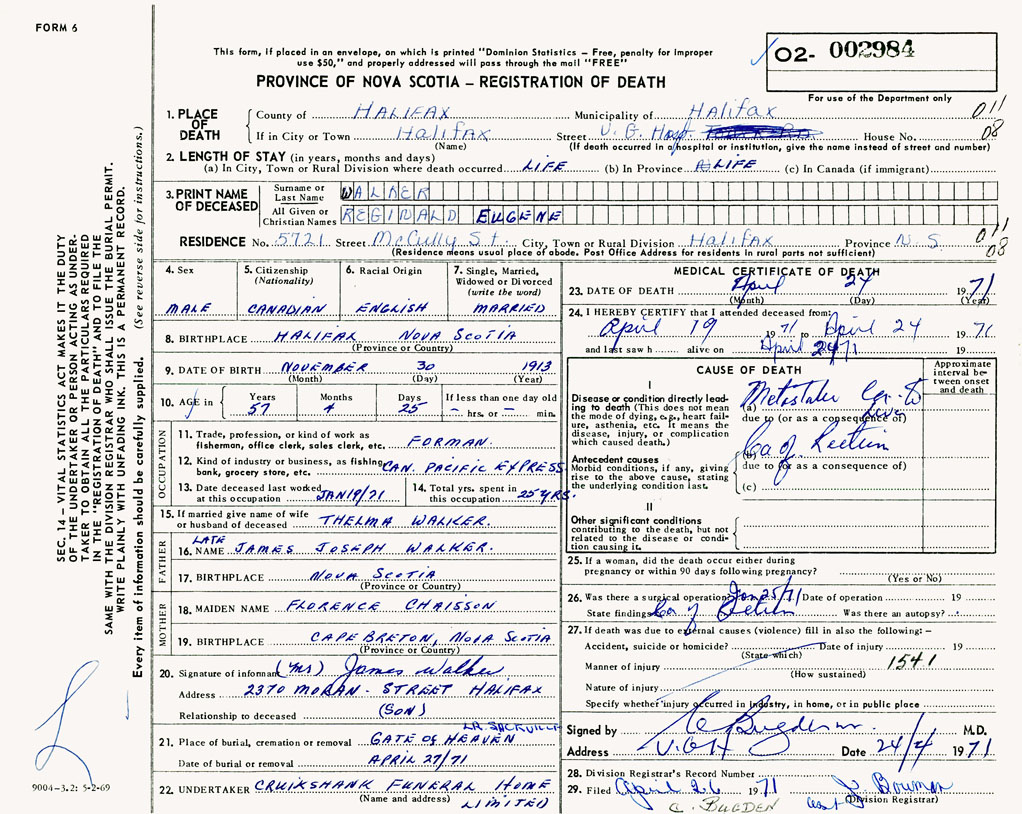 FORM 6
This form, if placed in an envelope, on which is printed "Dominion Statistics – Free, penalty for improper
use $50," and properly addressed will pass through the mail "FREE"
PROVINCE OF NOVA SCOTIA – REGISTRATION OF DEATH
O2- 002984
For use of the Department only
1. PLACE OF DEATH
County of HALIFAX Municipality of Halifax 011
If in City or Town Halifax Street V. G. Hosp. House No. 08
(Name) (If death occurred in a hospital or institution, give the name instead of street and number)
2. LENGTH OF STAY (in years, months and days)
(a) In City, Town or Rural Division where death occurred LIFE (b) In Province LIFE (c) In Canada (if immigrant)
3. PRINT NAME OF DECEASED
Surname or Last Name WALKER
All Given or Christian Names REGINALD EUGENE
RESIDENCE No. 5721 Street McCully St. City, Town or Rural Division Halifax Province N. S. 011 08
(Residence means usual place of abode. Post Office Address for residents in rural parts not sufficient)
4. Sex
MALE
5. Citizenship (Nationality)
CANADIAN
6. Racial Origin
ENGLISH
7. Single, Married, Widowed or Divorced (write the word)
MARRIED
8. BIRTHPLACE HALIFAX NOVA SCOTIA
(Province or Country)
9. DATE OF BIRTH NOVEMBER 30 1913
(Month) (Day) (Year)
10. AGE in Years Months Days If less than one day old
57 4 25 – hrs. or – min.
OCCUPATION
11. Trade, profession, or kind of work as
fisherman, office clerk, sales clerk, etc. FORMAN.
12. Kind of industry or business, as fishing,
bank, grocery store, etc. CAN. PACIFIC EXPRESS
13. Date deceased last worked
at this occupation JAN 19/71
14. Total yrs. spent in
this occupation 25 YRS.
15. If married give name of wife
or husband of deceased THELMA WALKER.
FATHER
LATE
16. NAME JAMES JOSEPH WALKER.
17. BIRTHPLACE NOVA SCOTIA
(Province or Country)
MOTHER
18. MAIDEN NAME FLORENCE CHAISSON
19. BIRTHPLACE CAPE BRETON, NOVA SCOTIA
(Province or Country)
20. Signature of informant (MR) James Walker
Address 2370 MORAN - STREET HALIFAX
Relationship to deceased (SON)
LR. SACKVILLE
21. Place of burial, cremation or removal GATE OF HEAVEN
Date of burial or removal APRIL 27/71
22. UNDERTAKER CRUIKSHANK FUNERAL HOME
(Name and address) LIMITED
MEDICAL CERTIFICATE OF DEATH
23. DATE OF DEATH April 24 1971
(Month) (Day) (Year)
24. I HEREBY CERTIFY that I attended deceased from:
April 19 1971 to April 24 1971
and last saw h alive on April 24/71 19
CAUSE OF DEATH
Approximate interval between onset and death
I
Disease or condition directly lead-
ing to death (This does not mean
the mode of dying, e.g., heart fail-
ure, asthenia, etc. It means the
disease, injury, or complication
which caused death.)
(a) Ca. to
Liver
due to (or as a consequence of)
Antecedent causes
Morbid conditions, if any, giving
rise to the above cause, stating
the underlying condition last.
(b) Ca of Rectum
due to (or as a consequence of)
(c)
II
Other significant conditions
contributing to the death, but not
related to the disease or condi-
tion causing it.
25. If a woman, did the death occur either during
pregnancy or within 90 days following pregnancy?
(Yes or No)
26. Was there a surgical operation Jan 25/71 Date of operation 19
State findings Ca of Rectum Was there an autopsy?
27. If death was due to external causes (violence) fill in also the following: –
Accident, suicide or homicide? Date of injury 19
(State which)
Manner of injury 1541
(How sustained)
Nature of injury
Specify whether injury occurred in industry, in home, or in public place
Signed by C Bugden M.D.
Address V.G.H Date 24/4 1971
28. Division Registrar's Record Number
29. Filed April 26 1971 J. Bowman
(Division Registrar)
C. BUGDEN
SEC. 14 – VITAL STATISTICS ACT MAKES IT THE DUTY
OF THE UNDERTAKER OR PERSON ACTING AS UNDER-
TAKER TO OBTAIN ALL THE PARTICULARS REQUIRED
IN THE "REGISTRATION OF DEATH" AND TO FILE THE
SAME WITH THE DIVISION REGISTRAR WHO SHALL ISSUE THE BURIAL PERMIT.
WRITE PLAINLY WITH UNFADING INK. THIS IS A PERMANENT RECORD.
Every item of information should be carefully supplied. (See reverse side for instructions.)
9004-3.2: 5-2-69